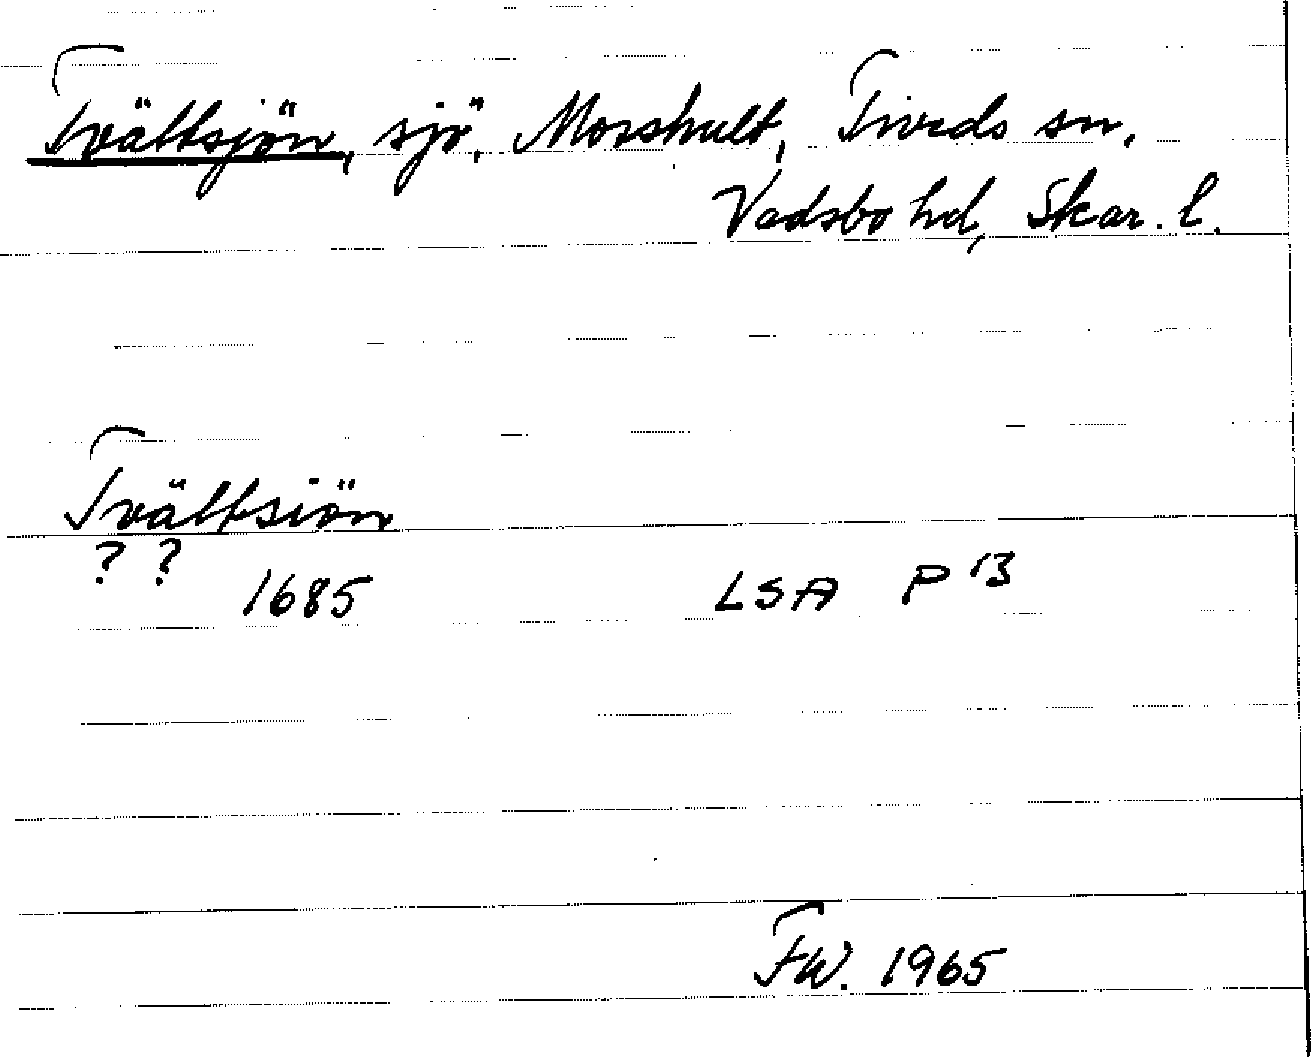 Tvättsjön, sjö, Morshult, Tiveds sn.
Vadsbo hd, Skar. l.
Tvättsiön
? ?
1685 LSA P 13
FW. 1965